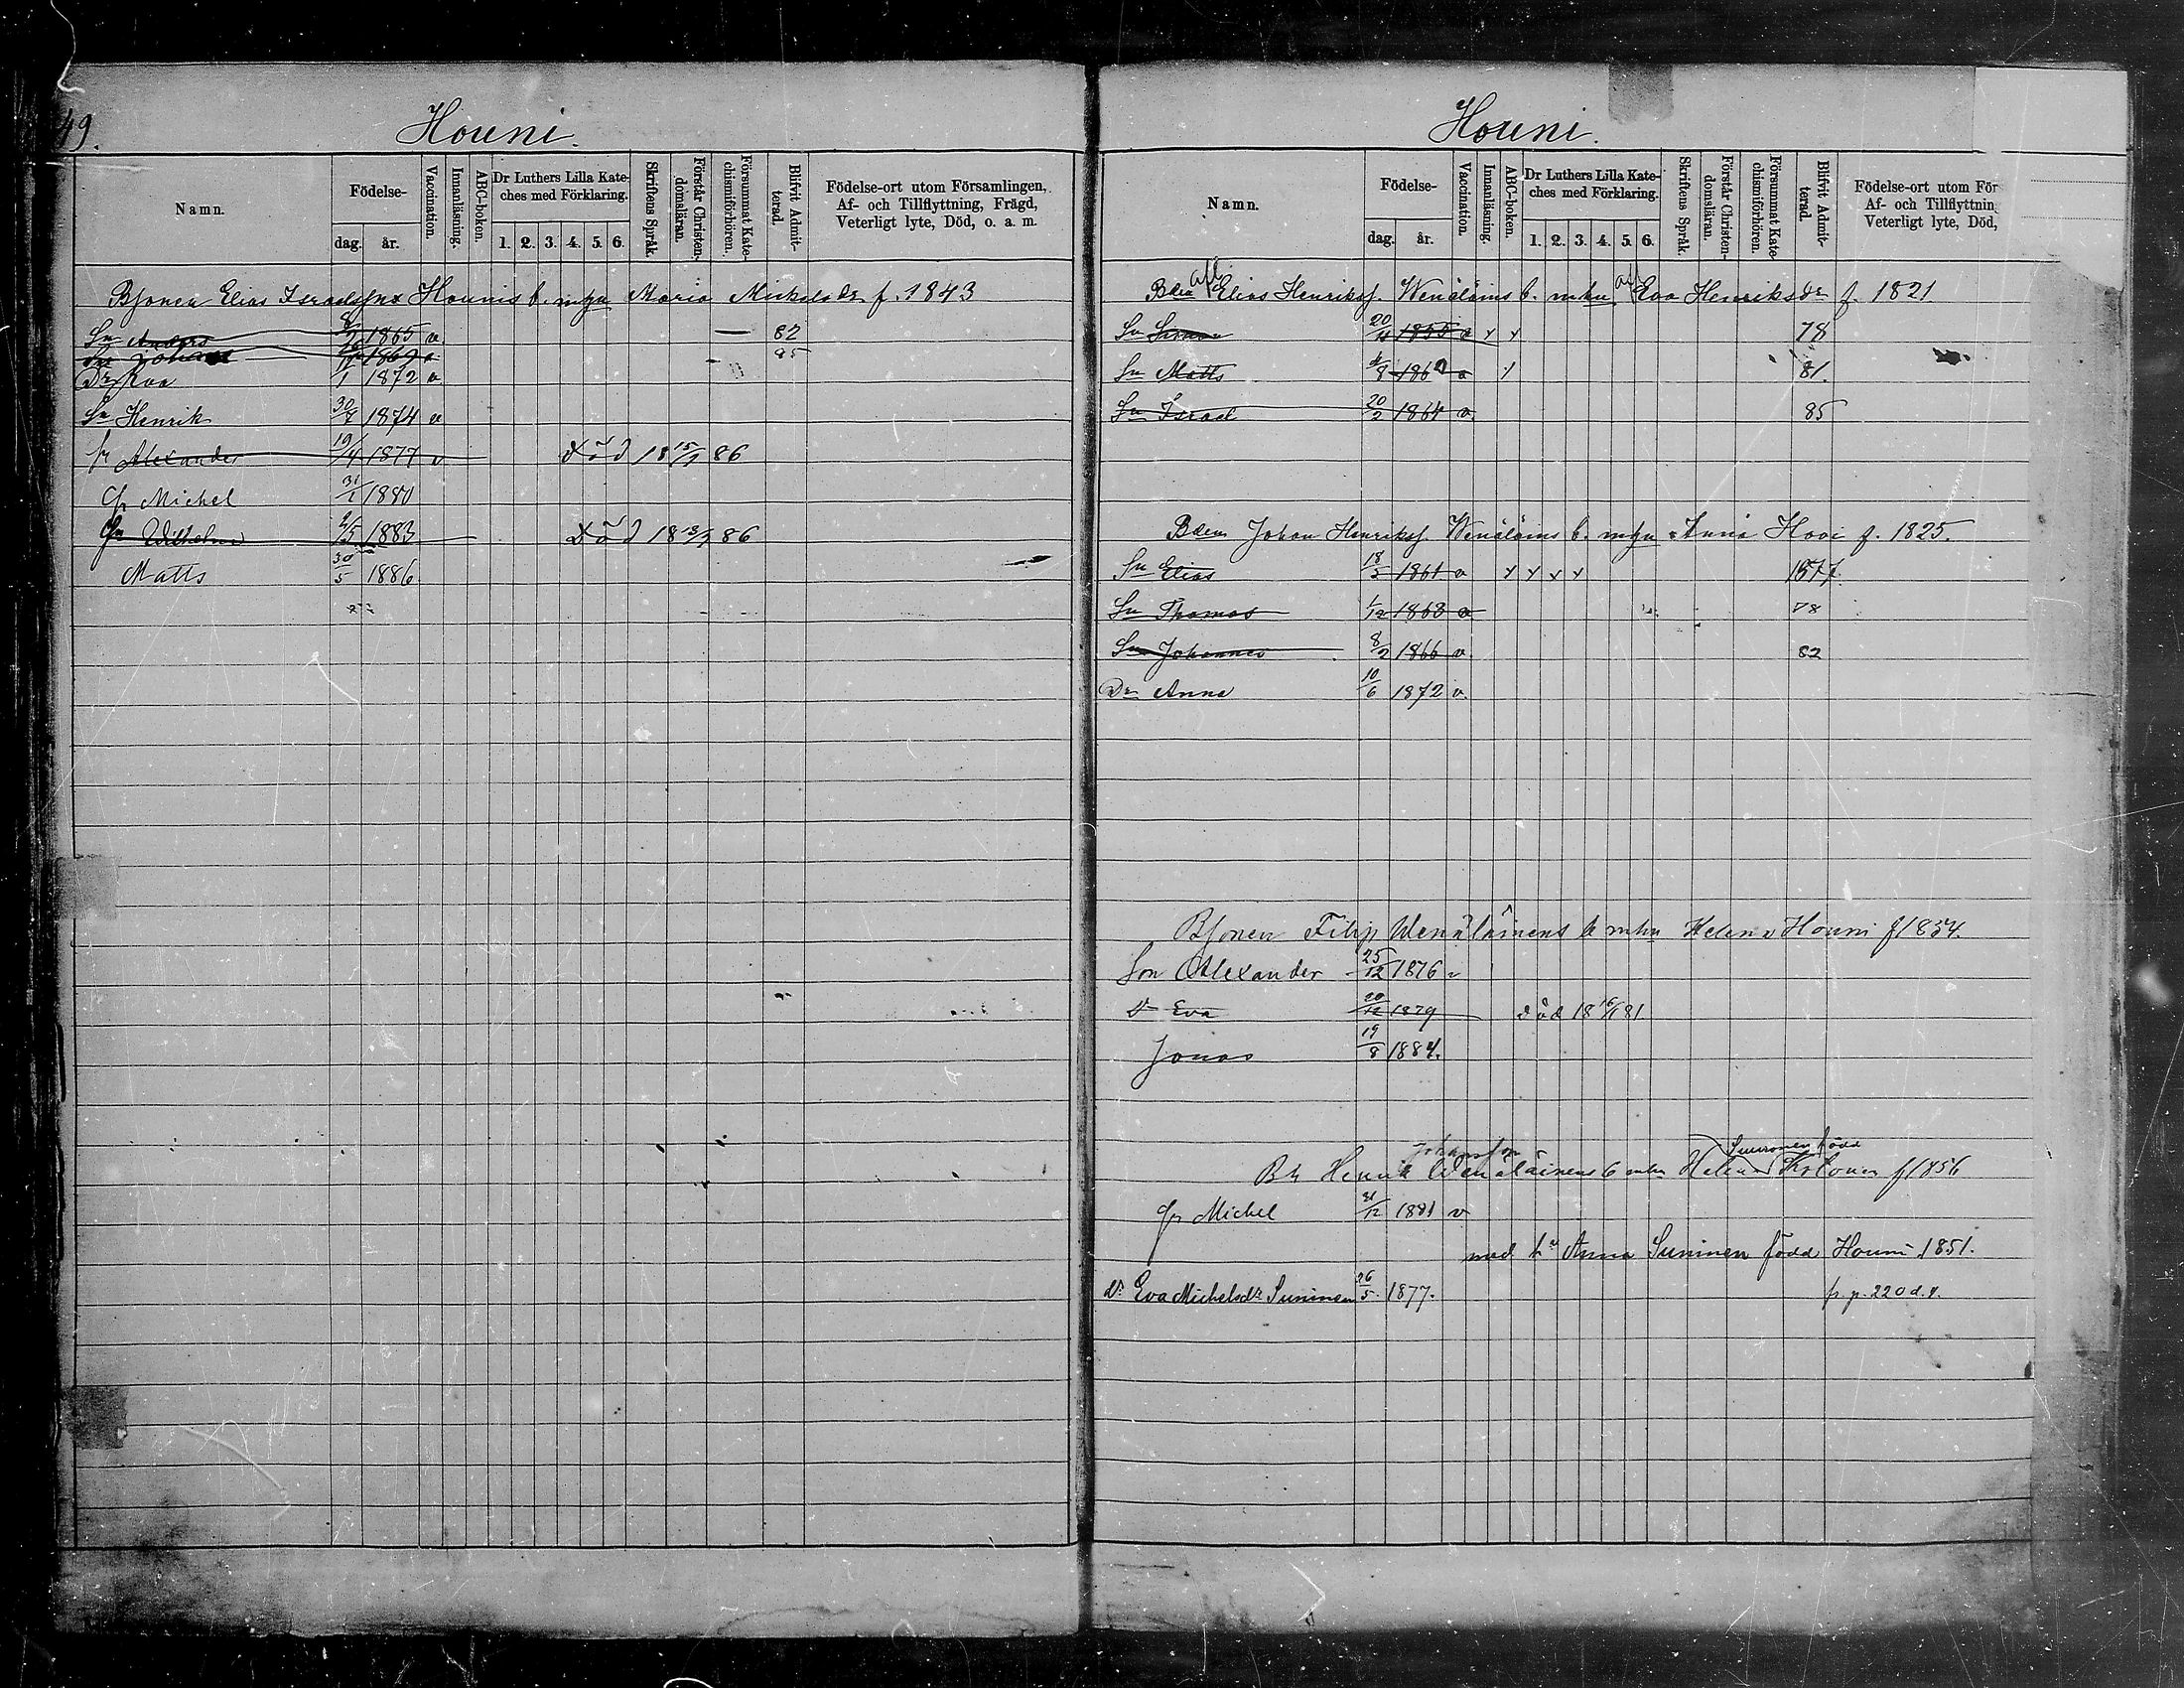 49.
Houni.
Namn.
Födelse-
dag.
år.
Vaccination.
Innanläsning.
ABC-boken.
Dr Luthers Lilla Kate-
ches med Förklaring.
1. 2. 3. 4. 5. 6.
Skriftens Språk.
Förstår Christen-
domsläran.
Försummat Kate-
chismiförhören.
Blifvit Admit-
terad.
Födelse-ort utom Församlingen,
Af- och Tillflyttning, Frägd,
Veterligt lyte, Död, o. a. m.
Bsonen Elias Israels Hounis b. m hu Maria Mickelsdr f. 1843
Sn Anders 1865 v 82
Sn Johan 1869 v 85
Dr Eva 1872 v
Sn Henrik 30/7 1874 v
Sn Alexander 19/4 1877 v död 18 15/7 86
Sn Michel 31/1 1880
Sn Wilhelm 2/5 1883 död 18 13/7 86
Matts 30/5 1886
Houni.
Namn.
Födelse-
dag.
år.
Vaccination.
Innanläsning.
ABC-boken.
Dr Luthers Lilla Kate-
ches med Förklaring.
1. 2. 3. 4. 5. 6.
Skriftens Språk.
Förstår Christen-
domsläran.
Försummat Kate-
chismiförhören.
Blifvit Admit-
terad.
Födelse-ort utom För
Af- och Tillflyttnin
Veterligt lyte, Död,
Bden afl Elias Henriks. Wenäläins b. m hu afl Eva Henriksdr f. 1821
Sn Simon 20/11 1855 v x x 78
Sn Matts 4/8 1862 v x 81.
Sn Israel 20/2 1864 v. 85
Bden Johan Henriks. Wenäläins b. m hu Anna Hovi f. 1825.
Sn Elias 18/5 1861 v x x x x 1877
Sn Thomas 1/12 1863 v 78
Sn Johannes 8/2 1866 v. 82
Dr Anna 10/6 1872 v.
Bsonen Filip Wenäläinens b m hu Helena Houni f 1854.
son Alexander 25/12 1876 v
Dr Eva 20/12 1879 död 18 16/1 81
Jonas 19/8 1884.
Johansson Suuronen född
Bd Henrik Wenäläinens b m hu Helena f 1856
Sn Michel 31/12 1881 v
med hu Anna Suninen född Houni 1851.
dr Eva Michelsdr Suninen 26/5 1877. fr. p. 220 d. y.